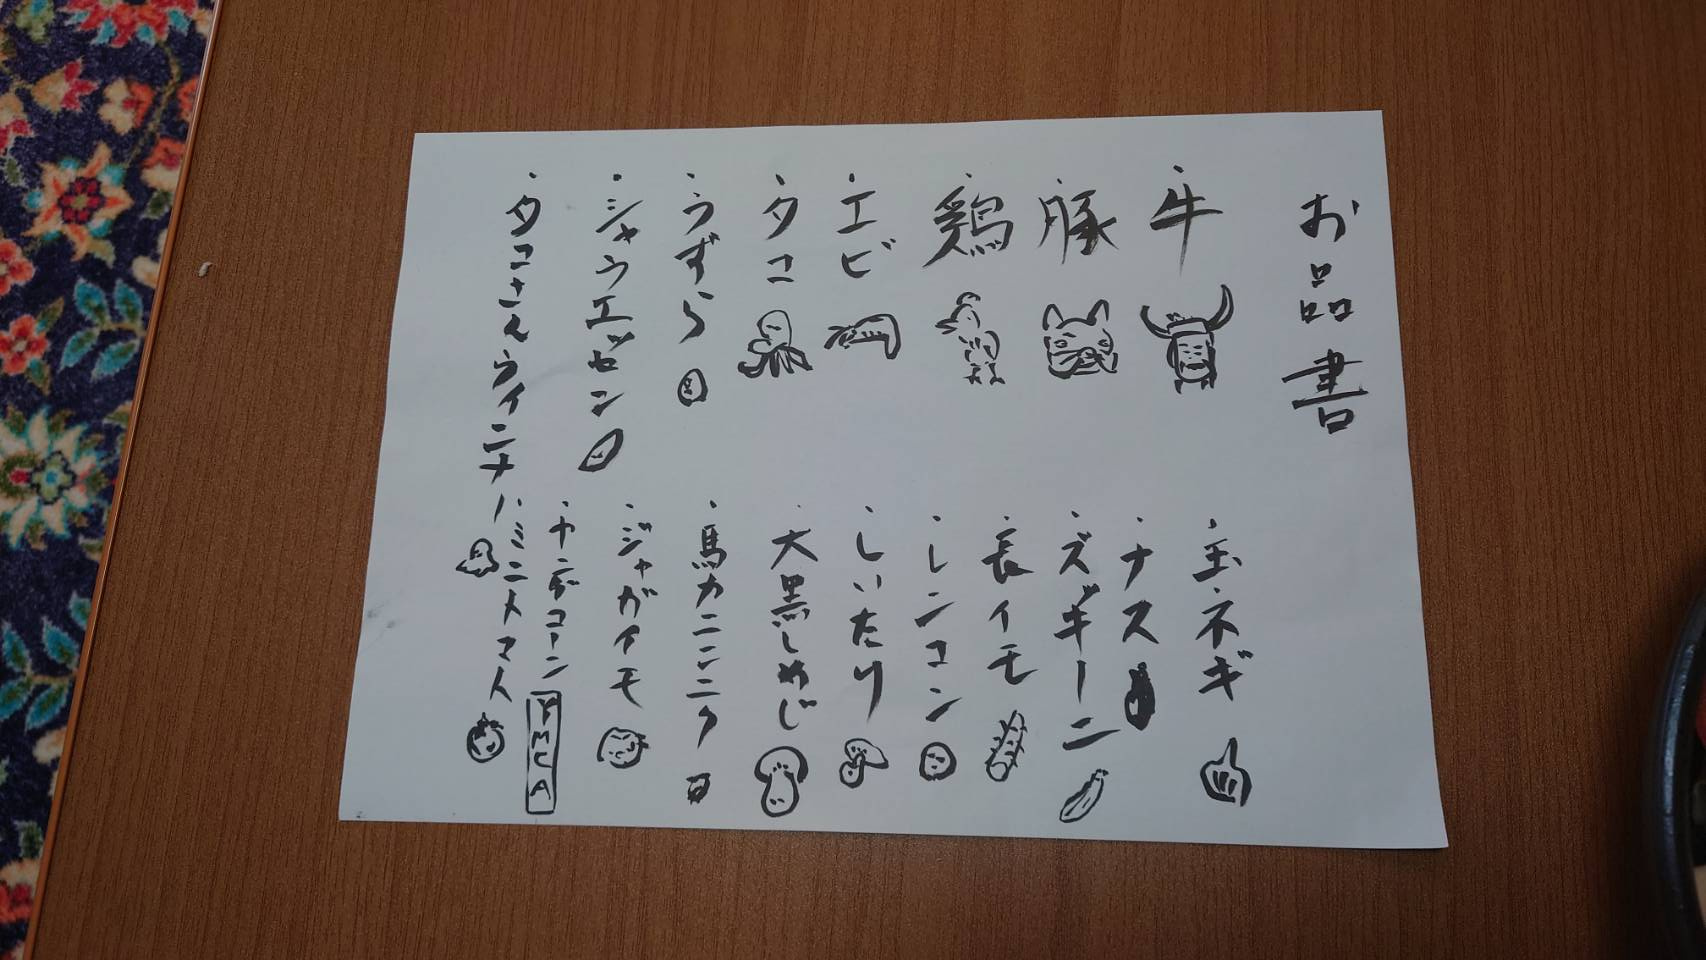 お品書
・牛
・豚
・鶏
・エビ
・タコ
・うずら
・シャウエッセン
・タコさんウインナー
・玉ネギ
・ナス
・ズッキーニ
・長イモ
・レンコン
・しいたけ
・大黒しめじ
・馬力ニンニク
・ジャガイモ
・ヤングコーン YMCA
・ミニトマト